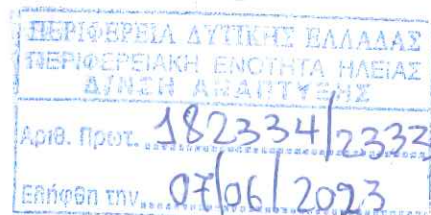 ΠΕΡΙΦΕΡΕΙΑ ΔΥΤΙΚΗΣ ΕΛΛΑΔΑΣ
ΠΕΡΙΦΕΡΕΙΑΚΗ ΕΝΟΤΗΤΑ ΗΛΕΙΑΣ
Δ/ΝΣΗ ΑΝΑΠΤΥΞΗΣ
Αριθ. Πρωτ. 182334/2332
Ελήφθη την 07/06/2023